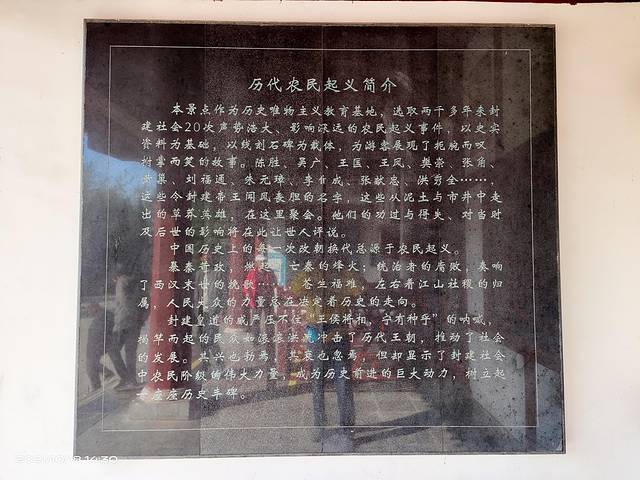 历代农民起义简介
本景点作为历史唯物主义教育基地，选取两千多年来封
建社会20次声势浩大、影响深远的农民起义事件，以史实
资料为基础，以线刻石碑为载体，为游客展现了扼腕而叹、
拊掌而笑的故事。陈胜、吴广、王匡、王凤、樊崇、张角、
黄巢、刘福通、朱元璋、李自成、张献忠、洪秀全……，
这些令封建帝王闻风丧胆的名字，这些从泥土与市井中走
出的草莽英雄，在这里聚会。他们的功过与得失、对当时
及后世的影响将在此让世人评说。
中国历史上的每一次改朝换代总源于农民起义。
暴秦苛政，燃起 亡秦的烽火；统治者的腐败，奏响
了西汉末世的挽歌…… 苍生福难，左右着江山社稷的归
属，人民大众的力量总在决定着历史的走向。
封建皇道的威严压不住“王侯将相，宁有种乎”的呐喊，
揭竿而起的民众如滚滚洪流冲击了历代王朝，推动了社会
的发展。其兴也勃焉，其衰也忽焉，但却显示了封建社会
中农民阶级的伟大力量，成为历史前进的巨大动力，树立起
一座座历史丰碑。